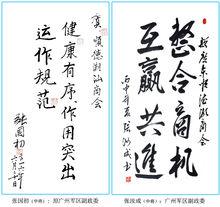 贺顺德潮汕商会
健康有序作用突出
运作规范
张国初
六月廿日
整合商机
互赢共進
丙申年夏张汝成
张国初(中将):原广州军区副政委
张汝成(中将):广州军区副政委